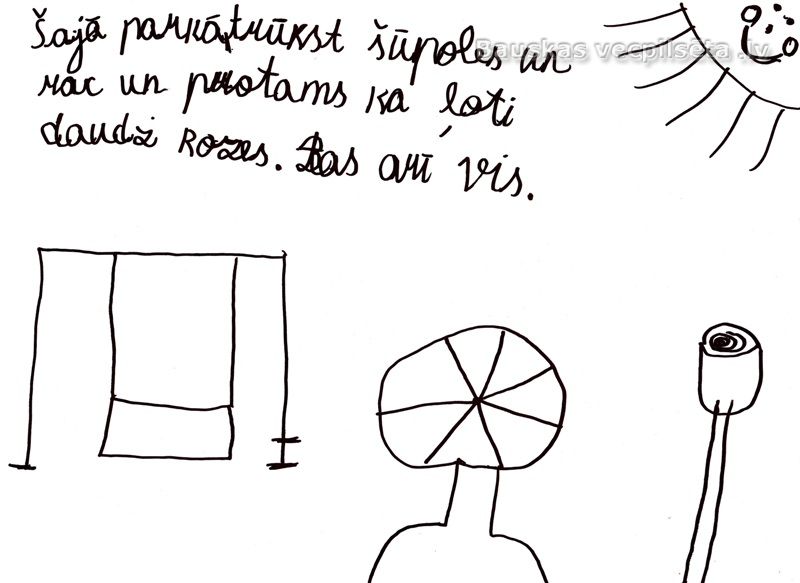 Šajā parkā trūkst šūpoles un
Bauskas vecpilseta .lv
rac un protams ka ļoti
daudz rozes. Tas arī vis.